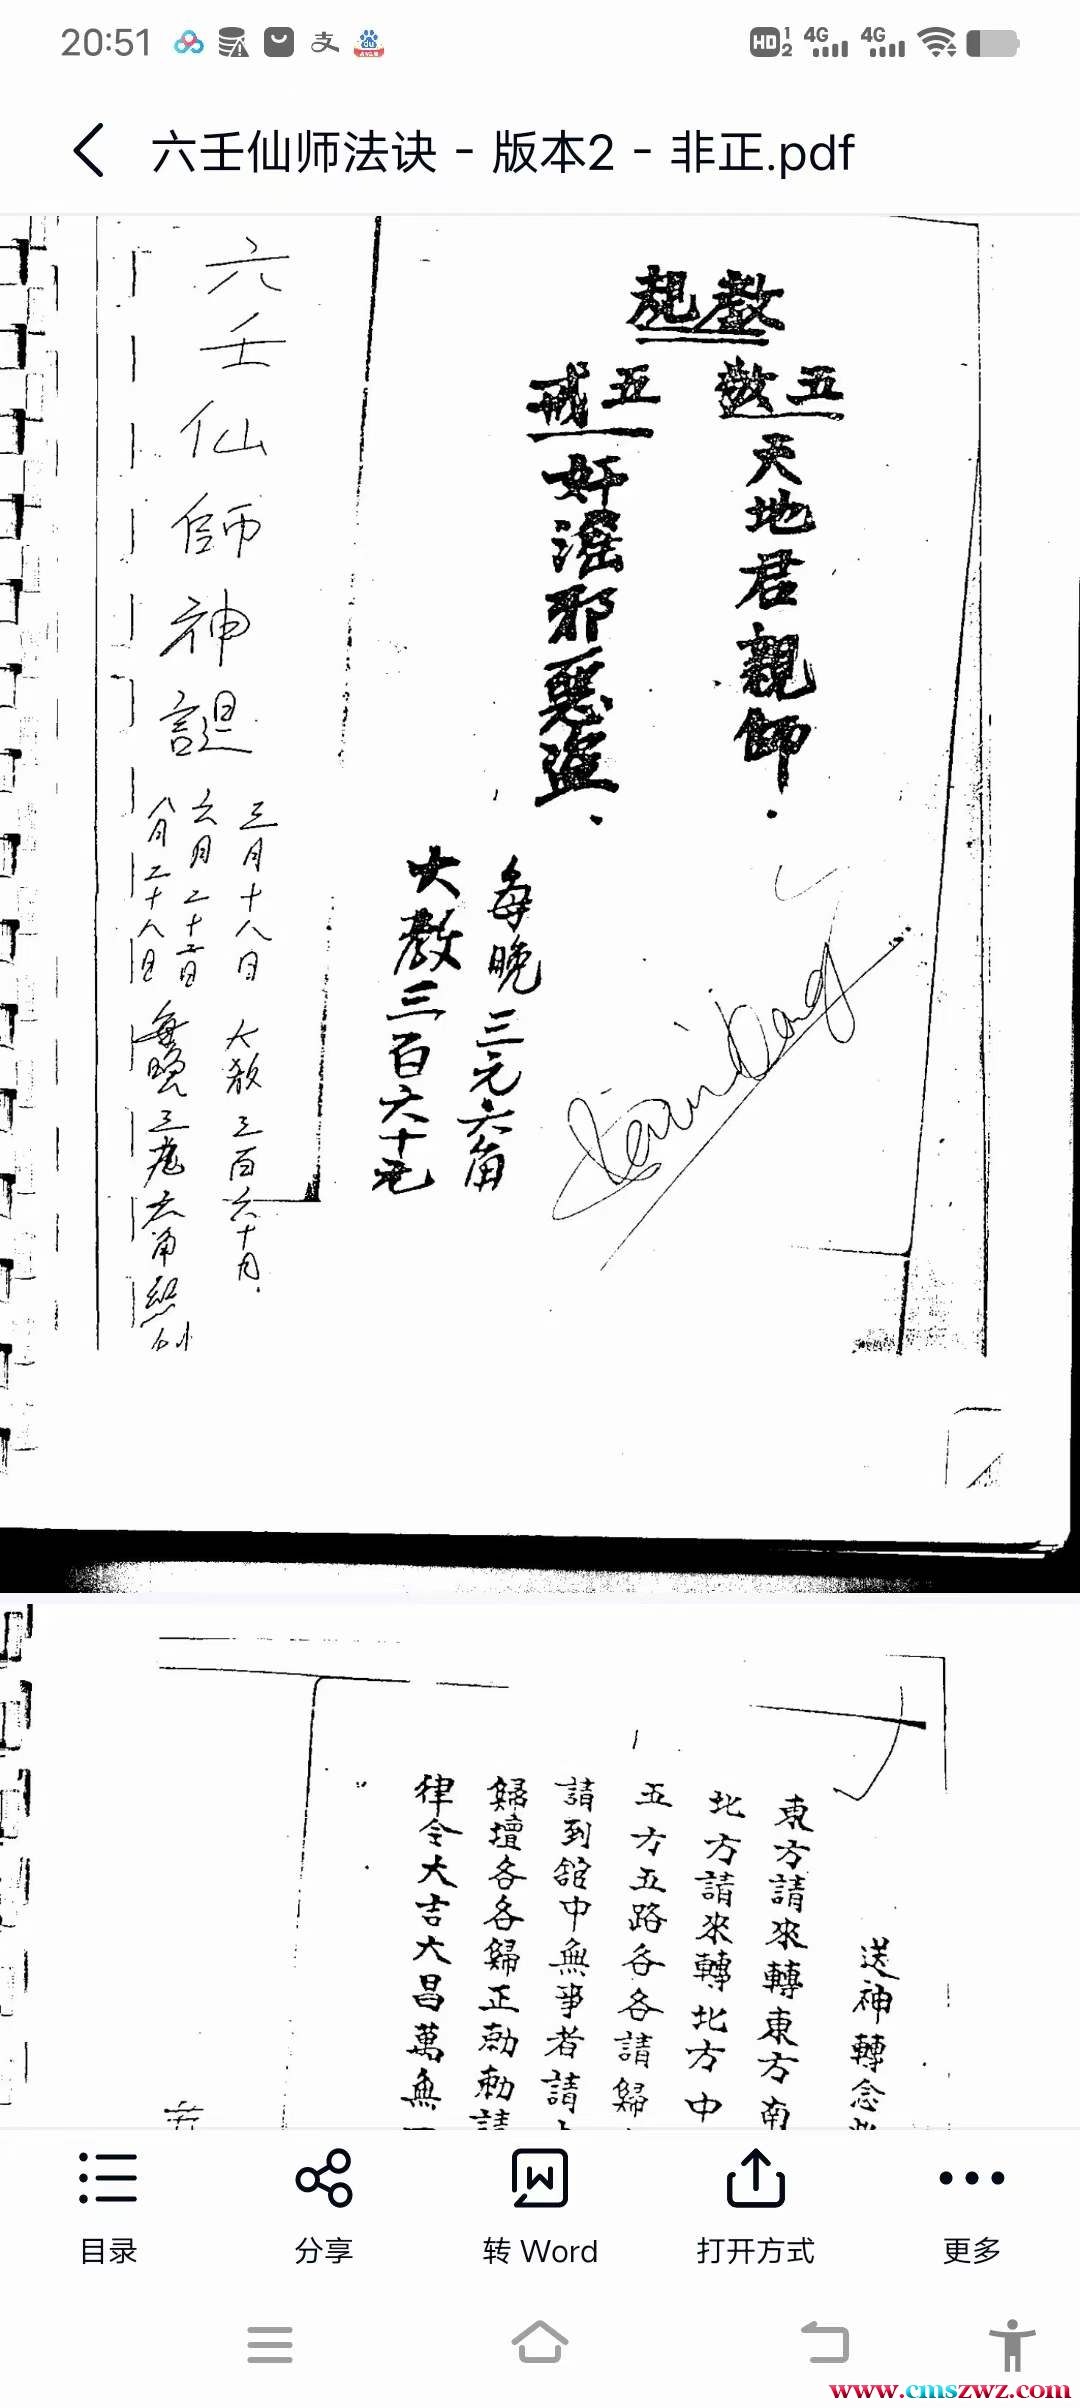 20:51
HD 1 2 4G 4G
六壬仙师法诀 - 版本2 - 非正.pdf
教規
五敬
天地君親師
五戒
奸滛邪惡盗
每晚三元六角
大教三百六十元
六壬仙師神誕
三月十八日
六月二十二日
八月二十八日
大教三百六十
每晚三
六角
送神轉念
東方請來轉東方南
北方請來轉北方中
五方五路各各請歸
請到舘中無事者請
歸壇各各歸正勅勅請
律令大吉大昌萬無
目录
分享
转 Word
打开方式
更多
www.cmszwz.com